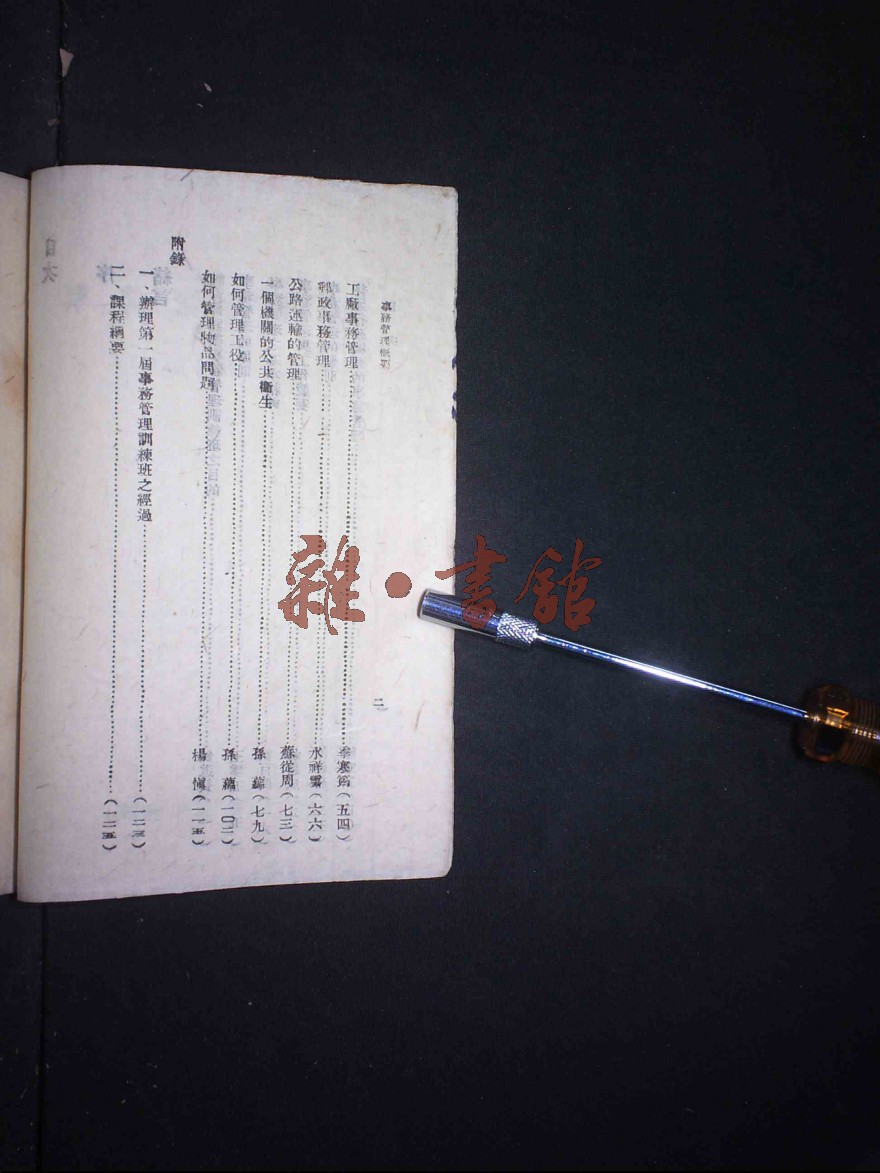 事務管理概要
二
工廠事務管理……李寒筠(五四)
郵政事務管理……水祥雲(六六)
公路運輸的管理……蘇從周(七三)
一個機關的公共衞生……孫　蘊(七九)
如何管理工役……孫　蘊(一〇二)
如何管理物品問題……楊　愼(一一五)
附錄
一、辦理第一屆事務管理訓練班之經過……(一二三)
二、課程綱要……(一二五)
雜·書舘